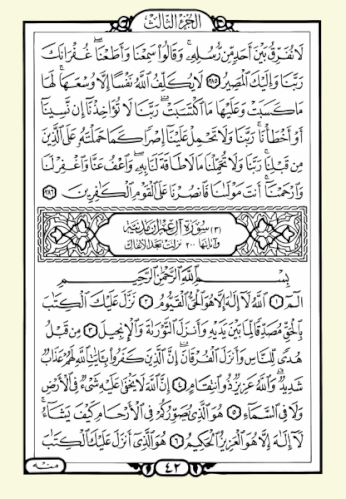 الجزء الثالث
لَا نُفَرِّقُ بَيْنَ أَحَدٍ مِنْ رُسُلِهِ وَقَالُوا سَمِعْنَا وَأَطَعْنَا غُفْرَانَكَ
رَبَّنَا وَإِلَيْكَ الْمَصِيرُ ٢٨٥ لَا يُكَلِّفُ اللَّهُ نَفْسًا إِلَّا وُسْعَهَا لَهَا
مَا كَسَبَتْ وَعَلَيْهَا مَا اكْتَسَبَتْ رَبَّنَا لَا تُؤَاخِذْنَا إِنْ نَسِينَا
أَوْ أَخْطَأْنَا رَبَّنَا وَلَا تَحْمِلْ عَلَيْنَا إِصْرًا كَمَا حَمَلْتَهُ عَلَى الَّذِينَ
مِنْ قَبْلِنَا رَبَّنَا وَلَا تُحَمِّلْنَا مَا لَا طَاقَةَ لَنَا بِهِ وَاعْفُ عَنَّا وَاغْفِرْ لَنَا
وَارْحَمْنَا أَنْتَ مَوْلَانَا فَانْصُرْنَا عَلَى الْقَوْمِ الْكَافِرِينَ ٢٨٦
(٣) سورة آل عمران مدنية
وآياتها ٢٠٠ نزلت بعد الأنفال
بِسْمِ اللَّهِ الرَّحْمَٰنِ الرَّحِيمِ
الم ١ اللَّهُ لَا إِلَٰهَ إِلَّا هُوَ الْحَيُّ الْقَيُّومُ ٢ نَزَّلَ عَلَيْكَ الْكِتَابَ
بِالْحَقِّ مُصَدِّقًا لِمَا بَيْنَ يَدَيْهِ وَأَنْزَلَ التَّوْرَاةَ وَالْإِنْجِيلَ ٣ مِنْ قَبْلُ
هُدًى لِلنَّاسِ وَأَنْزَلَ الْفُرْقَانَ إِنَّ الَّذِينَ كَفَرُوا بِآيَاتِ اللَّهِ لَهُمْ عَذَابٌ
شَدِيدٌ وَاللَّهُ عَزِيزٌ ذُو انْتِقَامٍ ٤ إِنَّ اللَّهَ لَا يَخْفَىٰ عَلَيْهِ شَيْءٌ فِي الْأَرْضِ
وَلَا فِي السَّمَاءِ ٥ هُوَ الَّذِي يُصَوِّرُكُمْ فِي الْأَرْحَامِ كَيْفَ يَشَاءُ
لَا إِلَٰهَ إِلَّا هُوَ الْعَزِيزُ الْحَكِيمُ ٦ هُوَ الَّذِي أَنْزَلَ عَلَيْكَ الْكِتَابَ
٤٢
منه